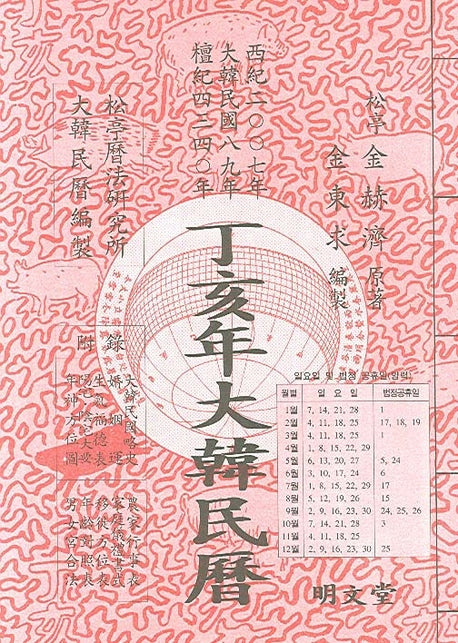 松亭 金赫濟 原著
金東求 編製
西紀二〇〇七年
大韓民國八九年
檀紀四三四〇年
松亭曆法硏究所
大韓民曆編製
丁亥年大韓民曆
附錄
大韓民國略史
婚姻運
生氣福德表
年神方位圖
農家行事表
家庭儀禮書式
移徙方位表
年齡對照表
男女宮合法
일요일 및 법정 공휴일(양력)
월별 일 요 일 법정공휴일
1월 7, 14, 21, 28 1
2월 4, 11, 18, 25 17, 18, 19
3월 4, 11, 18, 25 1
4월 1, 8, 15, 22, 29
5월 6, 13, 20, 27 5, 24
6월 3, 10, 17, 24 6
7월 1, 8, 15, 22, 29 17
8월 5, 12, 19, 26 15
9월 2, 9, 16, 23, 30 24, 25, 26
10월 7, 14, 21, 28 3
11월 4, 11, 18, 25
12월 2, 9, 16, 23, 30 25
明文堂